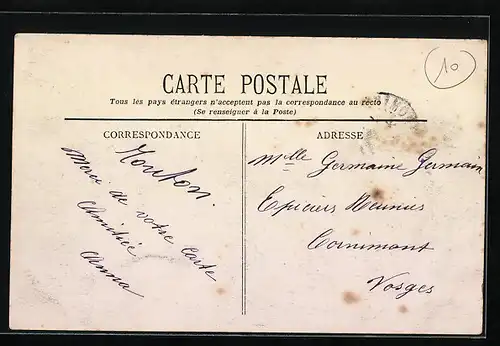 10
CARTE POSTALE
Tous les pays étrangers n'acceptent pas la correspondance au recto
(Se renseigner à la Poste)
CORRESPONDANCE
ADRESSE
Mouton.
Merci de votre Carte
Amitiée
Anna
Mlle Germaine Germain
Epiciers Réunis
Cornimont
Vosges